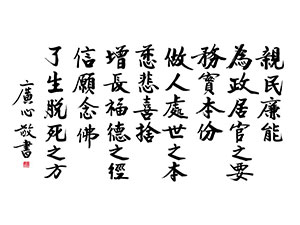 親民廉能
為政居官之要
務實本份
做人處世之本
慈悲喜捨
增長福德之徑
信願念佛
了生脫死之方
廣心敬書